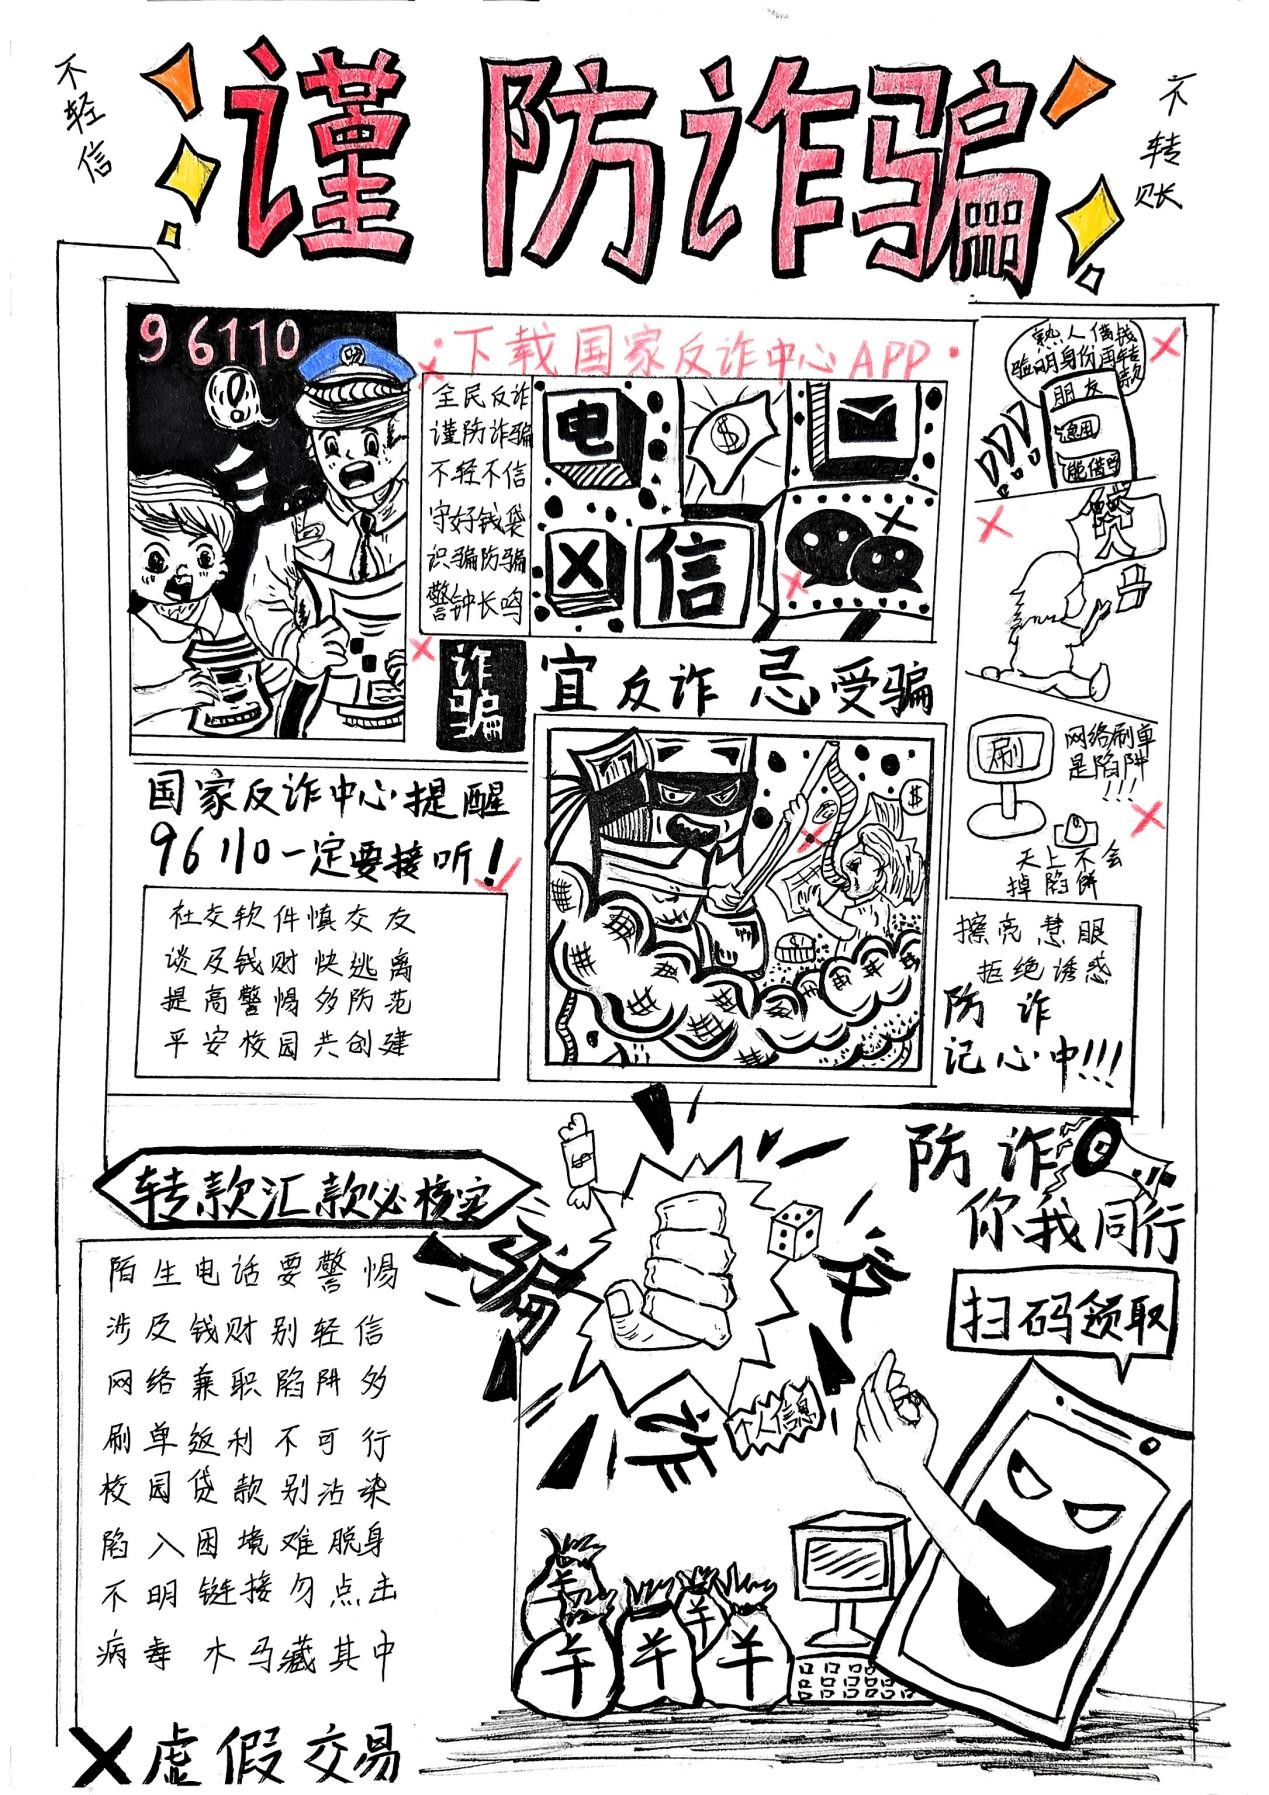 不轻信
谨防诈骗
不转账
96110
·下载国家反诈中心APP·
全民反诈
谨防诈骗
不轻不信
守好钱袋
识骗防骗
警钟长鸣
电
$
信
诈骗
宜反诈忌受骗
熟人借钱
验明身份再转款
朋友
急用
能借吗
刷
网络刷单
是陷阱
!!!
天上不会
掉陷饼
国家反诈中心提醒
96110一定要接听!
社交软件慎交友
谈及钱财快逃离
提高警惕多防范
平安校园共创建
$
擦亮慧眼
拒绝诱惑
防诈
记心中!!!
转款汇款必核实
陌生电话要警惕
涉及钱财别轻信
网络兼职陷阱多
刷单返利不可行
校园贷款别沾染
陷入困境难脱身
不明链接勿点击
病毒木马藏其中
X虚假交易
骗
诈
个人信息
防诈
你我同行
扫码领取
羊
羊
羊
羊
羊